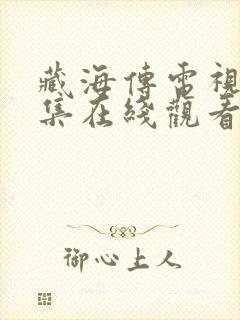 藏海傳電視
集在綫觀看
御心上人